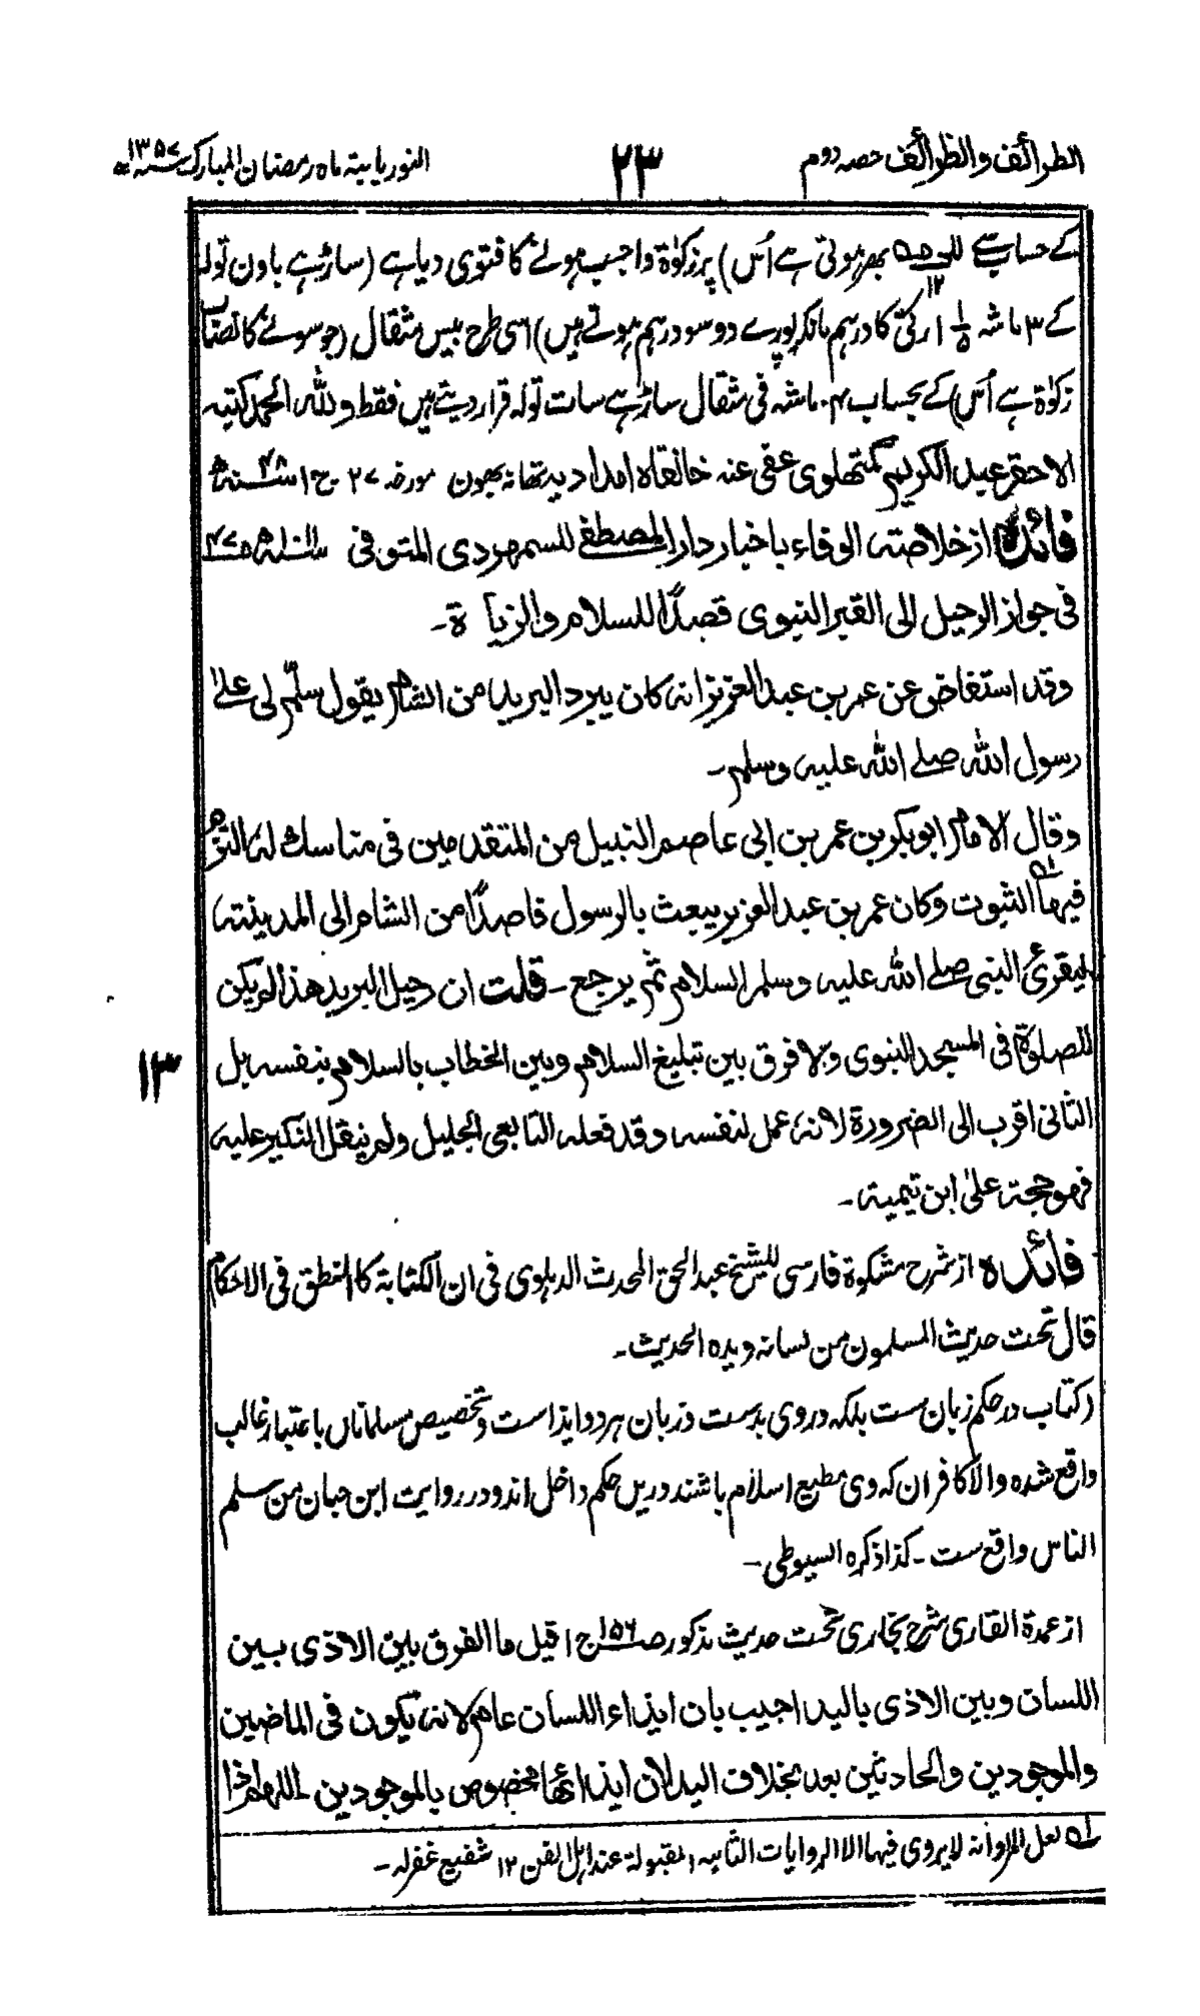 الطرائف والظرائف حصہ دوم
۲۳
النور بابتہ ماہ رمضان المبارک ۱۳۵۷ھ
کے حساب سے للعہ ۵۵ بھر ہوتی ہے اُس) پر زکوٰۃ واجب ہونے کا فتوی دیا ہے (ساڑھے باون تولہ
کے ۳ ماشہ ۱ ۱/۵ رتی کا درہم مانکر پورے دو سو درہم ہوتے ہیں) اسی طرح بیس مثقال (جو سونے کا نصاب
زکوٰۃ ہے اُس) کے بحساب ۴۔ ماشہ فی مثقال ساڑھے سات تولہ قرار دیتے ہیں فقط وللہ الحمد کتبہ
الاحقر عبد الکریم گمتھلوی عفی عنہ خانقاہ امدادیہ تھانہ بھون مورخہ ۲۷ ج ۱ ۴۸ سنہ ھ
فائدہ از خلاصۃ الوفاء باخبار دار المصطفٰے للسمہودی المتوفی سلانلہ ھ ص ۴۷
فی جواز الرحیل الی القبر النبوی قصدًا للسلام والزیا رۃ۔
وقد استفاض عن عمر بن عبد العزیز انہ کان یبرد البرید من الشام یقول سلّم لی علیٰ
رسول اللہ صلے اللہ علیہ وسلم۔
وقال الامام ابو بکر بن عمر بن ابی عاصم النبیل من المتقدمین فی مناسك لہ التزم
فیہا ۱ھ الثبوت وکان عمر بن عبد العزیز یبعث بالرسول قاصدًا من الشام الی المدینۃ
لیقرئ النبی صلے اللہ علیہ وسلم السلام ثم یرجع۔ قلت ان رحیل البرید ھذا لم یکن
للصلوٰۃ فی المسجد النبوی ولا فرق بین تبلیغ السلام وبین الخطاب بالسلام بنفسہ بل
۱۳
الثانی اقرب الی الضرورۃ لانہ عمل لنفسہ وقد فعلہ التابعی الجلیل ولم ینقل النکیر علیہ
فھو حجۃ علیٰ ابن تیمیۃ۔
فائدہ از شرح مشکوۃ فارسی للشیخ عبد الحق المحدث الدہلوی فی ان الکتابۃ کالنطق فی الاحکام
قال تحت حدیث المسلمون من لسانہ ویدہ الحدیث۔
کتاب در حکم زبان ست بلکہ دروی بدست و زبان ہر دو ایذا ست وتخصیص مسلماناں باعتبار غالب
واقع شدہ والا کافران کہ وی مطیع اسلام باشند دریں حکم داخل اند ودر روایت ابن حبان من سلم
الناس واقع ست۔ کذا ذکرہ السیوطی۔
از عمدۃ القاری شرح بخاری تحت حدیث مذکور صـ ۱۵۶ ج ۱ قیل ما الفرق بین الاذی بین
اللسان وبین الاذی بالید اجیب بان ایذاء اللسان عام لانہ یکون فی الماضین
والموجودین والحادثین بعد بخلاف الید لان ایذائھا مخصوص بالموجودین۔ اللھم اذا
۱ھ لعل المراد انہ لا یروی فیہا الا الروایات الثابتہ المقبولۃ عند اہل الفن ۱۲ شفیع غفرلہ۔